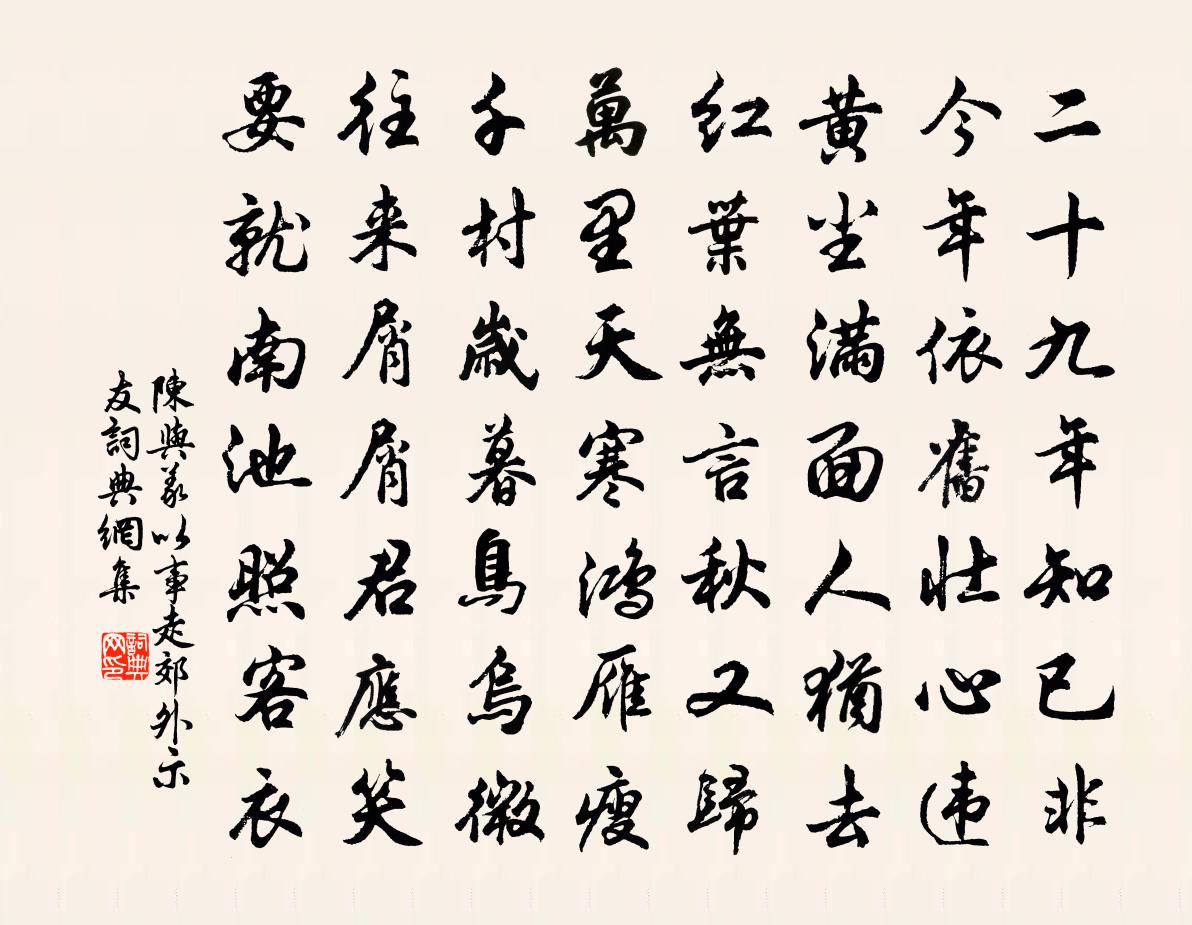 二十九年知已非
今年依舊壮心违
黄尘满面人猶去
红葉無言秋又歸
萬里天寒鸿雁瘦
千村歲暮鳥烏微
往来屑屑君應笑
要就南池照客衣
陳與義以事走郊外示
友詞典網集
詞典
网印